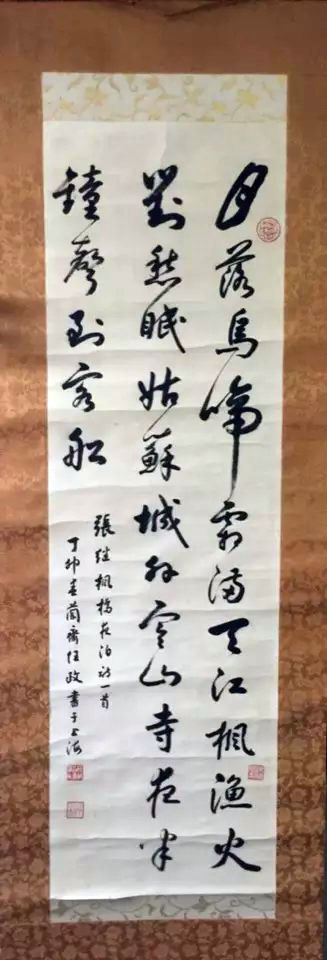 月落烏啼霜滿天江楓漁火
對愁眠姑蘇城外寒山寺夜半
鐘聲到客船
張继楓橋夜泊詩一首
丁卯春蘭齋任政書于上海